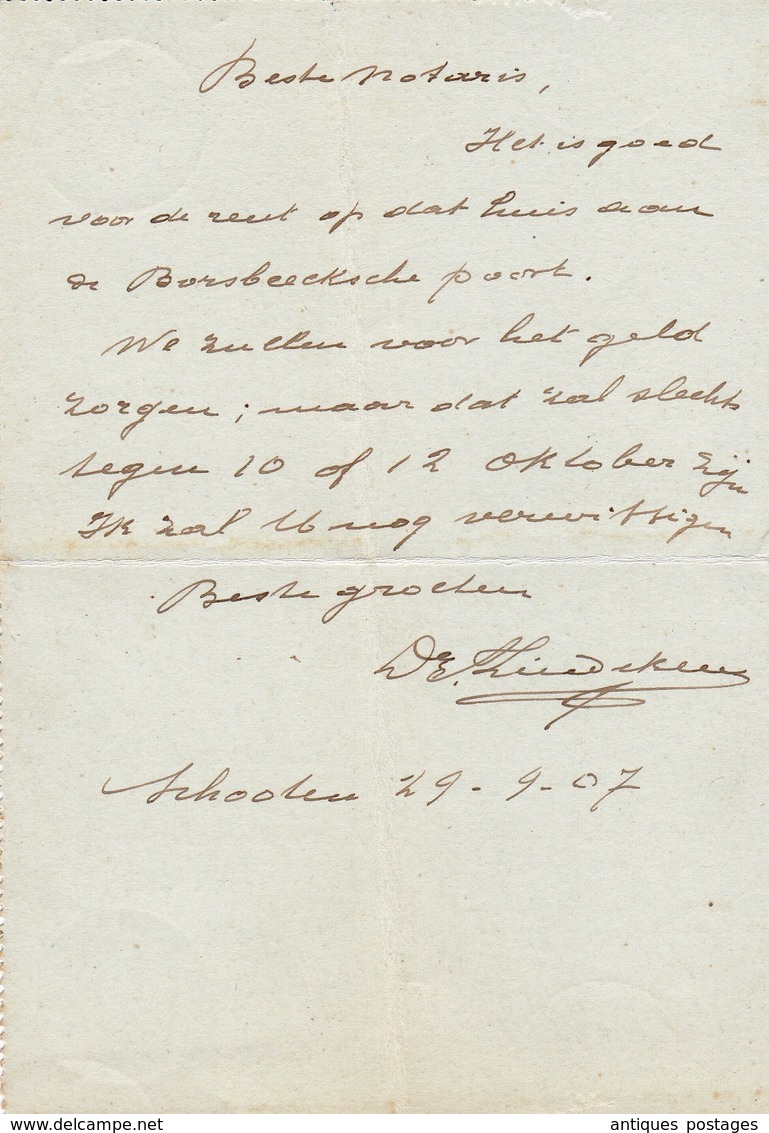 Beste Notaris,
Het is goed
voor de rent op dat huis aan
de Borsbeecksche poort.
We zullen voor het geld
zorgen; maar dat zal slechts
tegen 10 of 12 Oktober zijn
Ik zal U nog verwittigen
Beste groeten
Schooten 29-9-07
www.delcampe.net
antiques postages